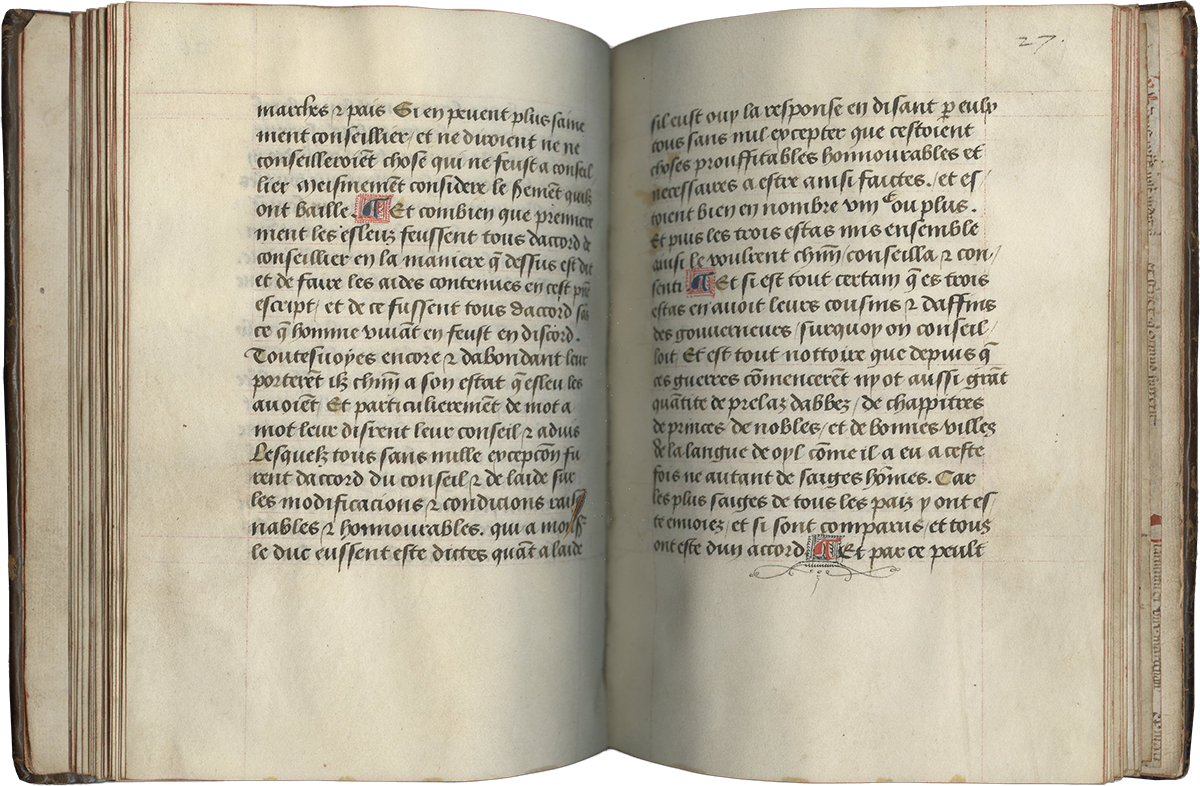 marches ⁊ pais Si en peuent plus saine
ment conseillier / et ne diroient ne ne
conseilleroiēt chose qui ne feust a conseil
lier Meismemēt considere le sēment quilz
ont baille. Et combien que premiere
ment les esleuz feussent tous daccord de
conseillier en la maniere q̄ dessus est dit
et de faire les aides contenues en cest pn̄t
escript / et de ce fussent tous daccord sās
ce q̄ homme viuant en feust en discord.
Toutesuoyes encore ⁊ dabondant leur
porterēt ilz chm̄ a son estat q̄ esleu les
auoiēt / Et particulieremēt de mot a
mot leur disrent leur conseil / ⁊ aduis
Lesquelz tous sans nulle excepcōn fu
rent daccord du conseil / ⁊ de laide sur
les modificacions ⁊ condicions raiso
nables ⁊ honnourables. qui a
le duc eussent este dictes quāt a laide
27.
sil eust ouy la response en disant ꝑ eulx
tous sans nul excepter que cestoient
choses prouffitables honnourables et
necessaires a estre ainsi faictes. / et es /
toient bien en nombre viiiͨ ou plus.
Et puis les trois estas mis ensemble
ainsi le voulrent chm̄ / conseilla ⁊ con /
senti Et si est tout certain q̄ es trois
estas en auoit leurs cousins ⁊ daffins
des gouuerneurs / surquoy on conseil /
loit Et est tout nottoire que depuis q̄
ces guerres cōmencerēt ny ot aussi grāt
quātite de prelaz dabbez / de chappitres
de princes de nobles / et de bonnes villez
de la langue de oyl cōme il a eu a ceste
fois ne autant de saiges hōmes. Car
les plus saiges de tous les paiz y ont es
te enuoiez / et si sont comparus / et touz
ont este dun accord Et par ce peult